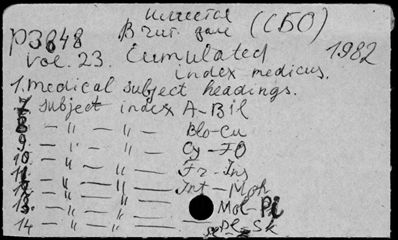 имеется
P3848 В чит. зале (СБО)
vol. 23. Cumulated 1982
index medicus.
1. Medical subject headings.
7 subject index A-Bil
8 - " - " - Blo-Cu
9 - " - " - Cy-FO
10. - " - " - Fr-Ins
11 - " - " - Int-Moh
12
13. - " - " - Mol-Pi
14 - " - " - Pl-Sk